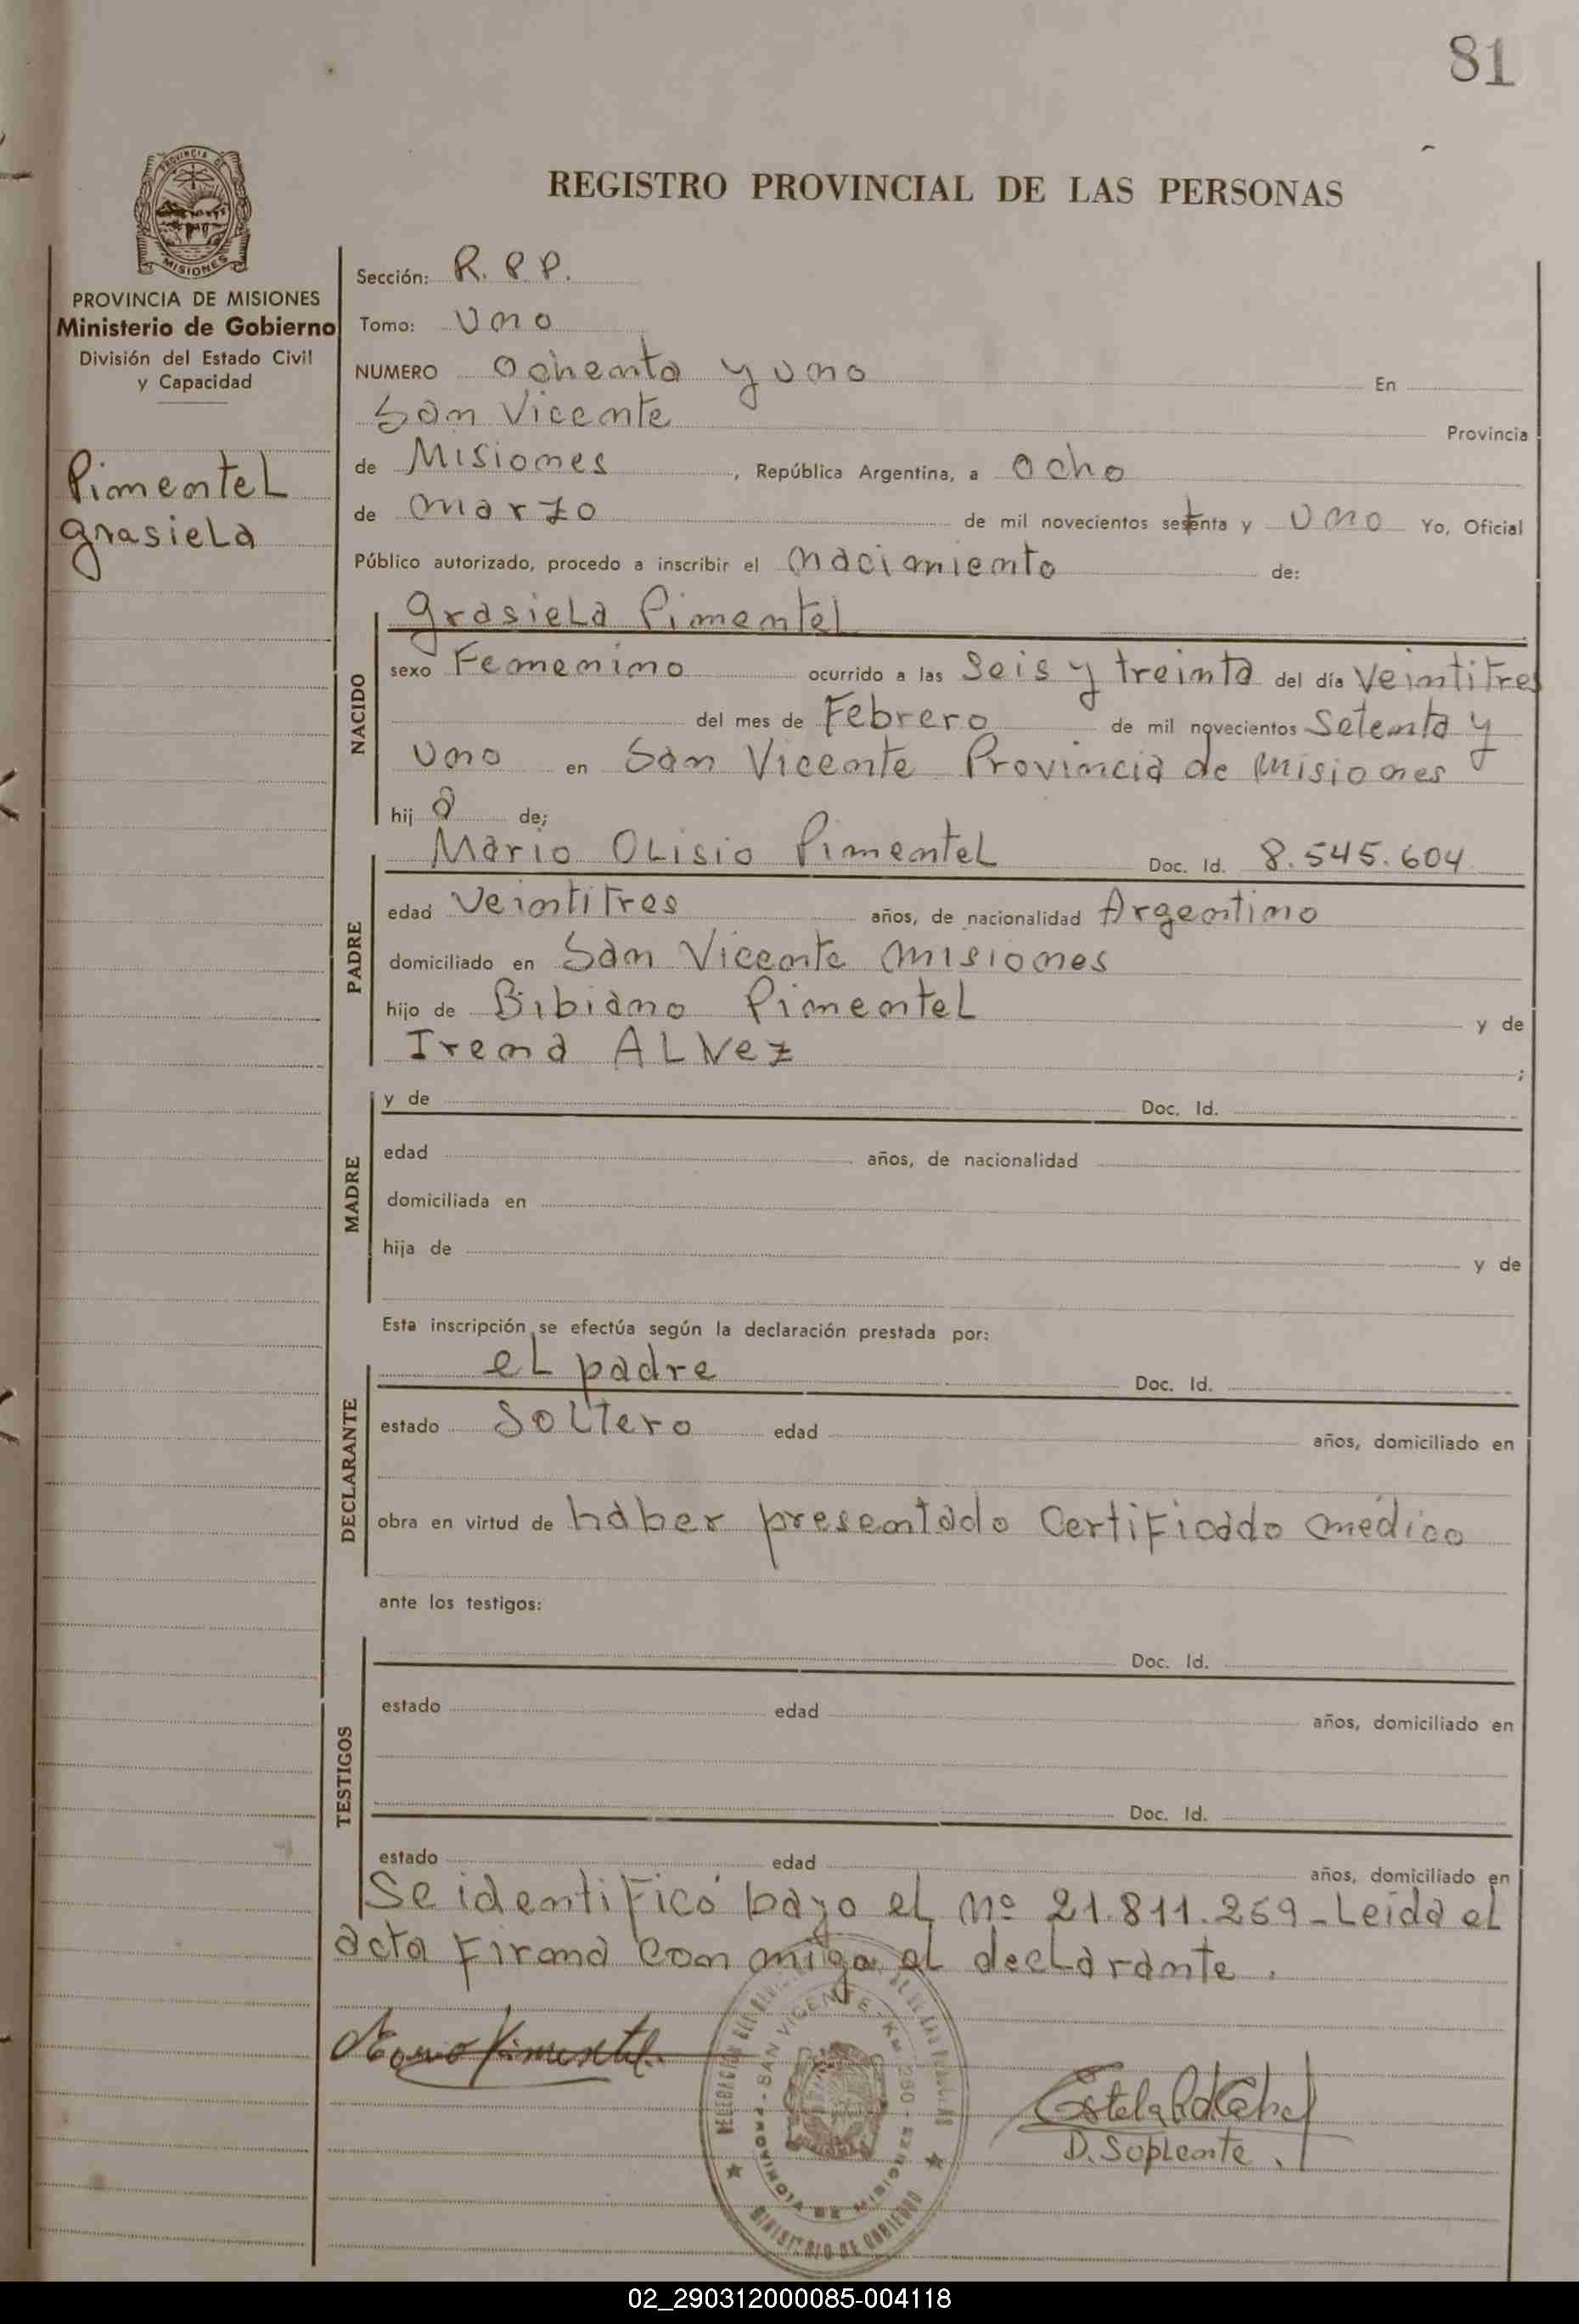 81
PROVINCIA DE
MISIONES
REGISTRO PROVINCIAL DE LAS PERSONAS
PROVINCIA DE MISIONES
Ministerio de Gobierno
División del Estado Civil
y Capacidad
Pimentel
grasiela
Sección: R.P.P.
Tomo: Uno
NUMERO ochenta y uno En
San Vicente Provincia
de Misiones, República Argentina, a ocho
de marzo de mil novecientos setenta y uno Yo, Oficial
Público autorizado, procedo a inscribir el nacimiento de:
NACIDO
grasiela Pimentel
sexo Femenino ocurrido a las seis y treinta del día veintitres
del mes de Febrero de mil novecientos setenta y
uno en San Vicente Provincia de misiones
hij a de;
PADRE
Mario Olisio Pimentel Doc. Id. 8.545.604
edad veintitres años, de nacionalidad Argentino
domiciliado en San Vicente misiones
hijo de Bibiano Pimentel y de
Irena ALVez ;
MADRE
y de Doc. Id.
edad años, de nacionalidad
domiciliada en
hija de y de
Esta inscripción se efectúa según la declaración prestada por:
DECLARANTE
el padre Doc. Id.
estado soltero edad años, domiciliado en
obra en virtud de haber presentado certificado médico
ante los testigos:
TESTIGOS
Doc. Id.
estado edad años, domiciliado en
Doc. Id.
estado edad años, domiciliado en
Se identificó bajo el nº 21.811.269_Leida el
acta firma conmigo el declarante.
Pimentel
SAN VICENTE - Km 290
PROVINCIA DE MISIONES
MINISTERIO DE GOBIERNO
Estela
D. Suplente.
02_290312000085-004118